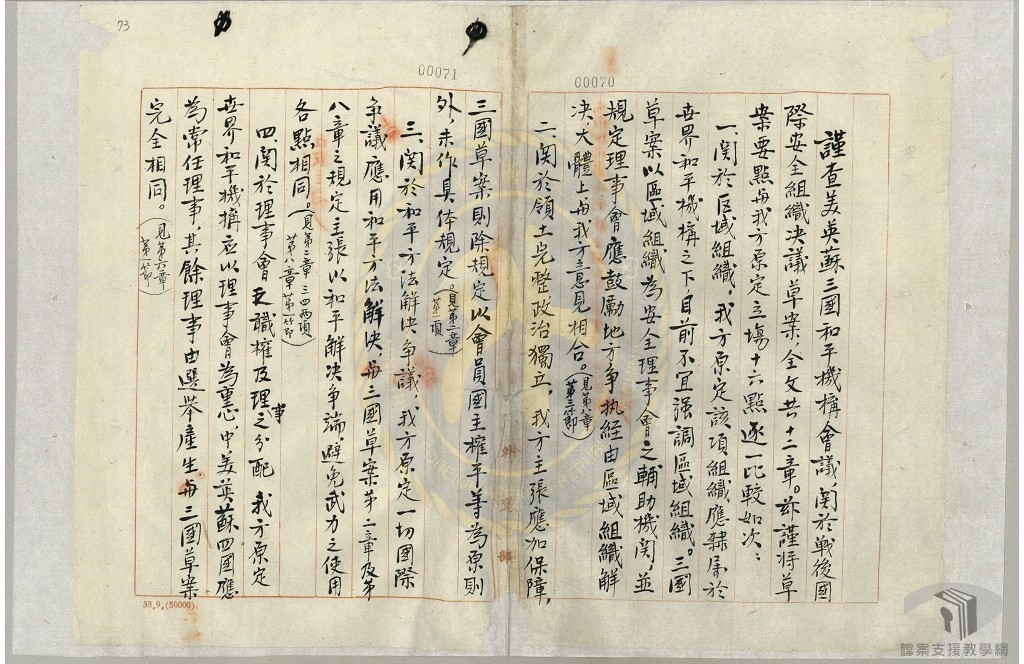 73
00071
00070
謹查美英蘇三國和平機構會議,關於戰後國
際安全組織決議草案,全文共十二章。茲謹將草
案要點與我方原定立場十六點逐一比較如次:
一、關於區域組織,我方原定該項組織應隸屬於
世界和平機構之下,目前不宜强調區域組織。三國
草案以區域組織為安全理事會之輔助機關,並
規定理事會應鼓勵地方爭执經由區域組織解
決,大體上與我方意見相合。(見第八章第三節)
二、關於領土完整政治獨立,我方主張應加保障,
三國草案則除規定以會員國主權平等為原則
外,未作具体規定。(見第二章第一項)
三、關於和平方法解決爭議,我方原定一切國際
爭議應用和平方法解決,與三國草案第二章及第
八章之規定主張以和平解決爭端,避免武力之使用
各點相同。(見第二章三四兩項第八章第一節)
四、關於理事會之職權及理事之分配 我方原定
世界和平機構應以理事會為重心,中美英蘇四國應
為常任理事,其餘理事由選舉產生與三國草案
完全相同。(見第六章第一節)
33.9.(50000)
外交部
檔案支援教學網